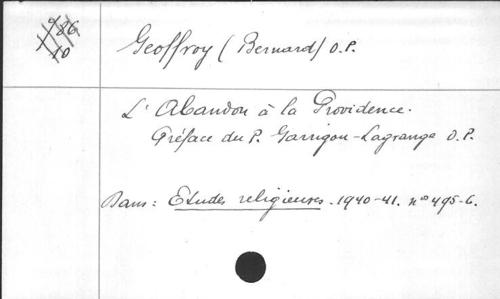 Geoffroy (Bernard) O.P.
L'Abandon à la Providence.
Préface du P. Garrigou-Lagrange O.P.
Dans : Etudes religieuses. 1940-41. nos 495-6.